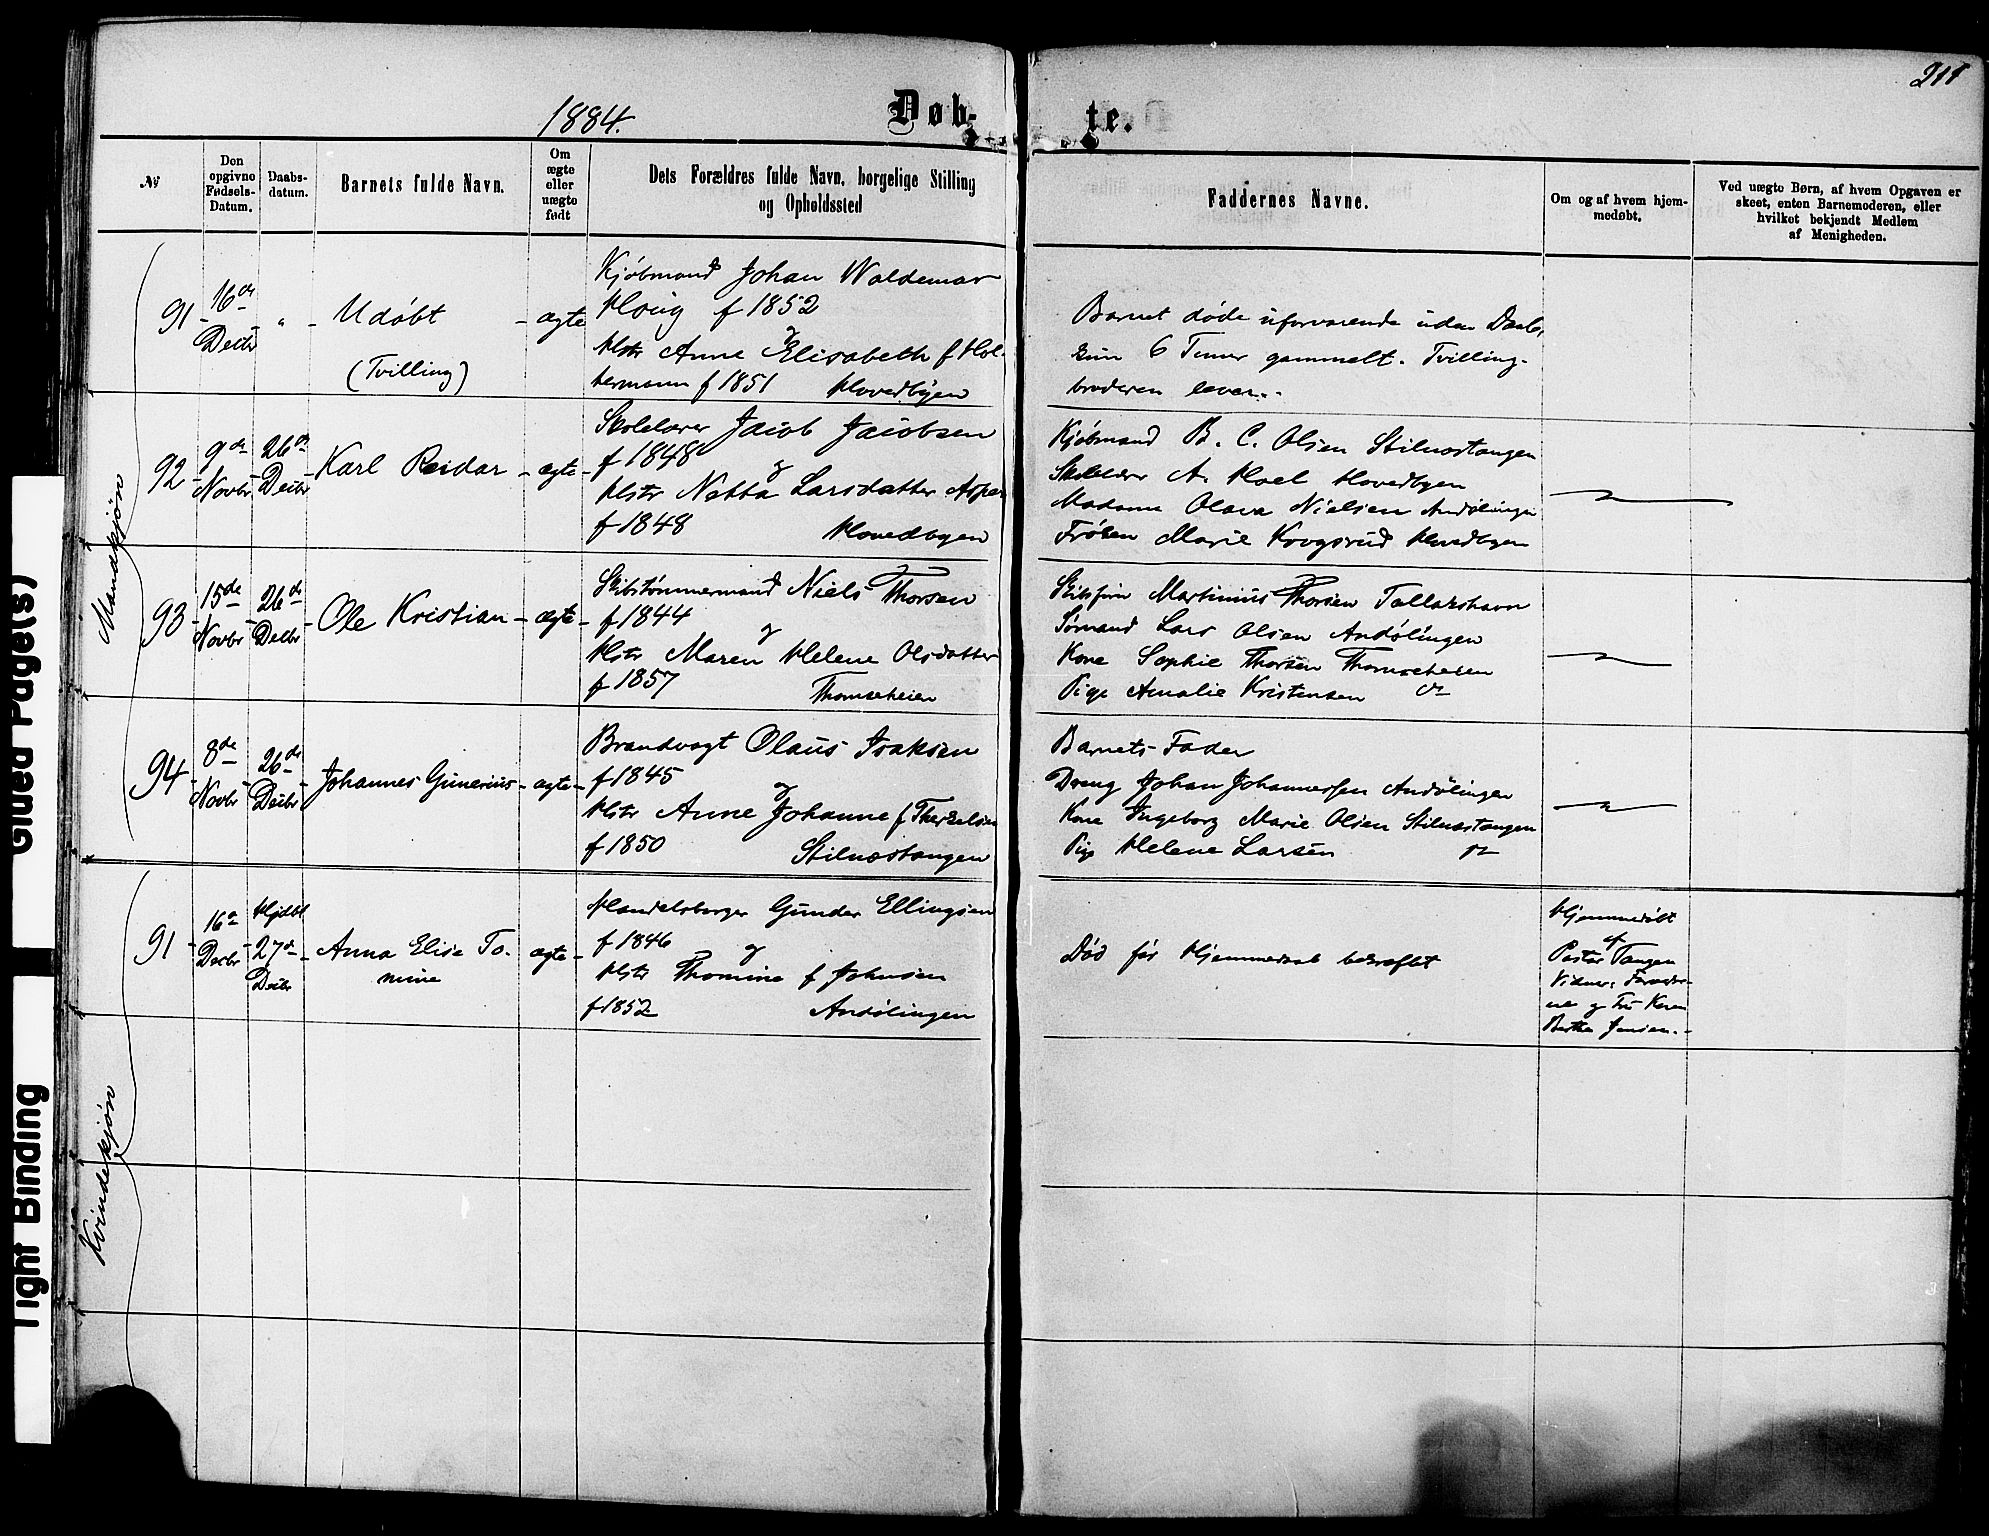 211
1884.
Døb-
te.
№
Den
opgivne
Fødsels-
Datum.
Daabs-
datum.
Barnets fulde Navn.
Om
ægte
eller
uægte
født
Dets Forældres fulde Navn, borgelige Stilling
og Opholdssted
Faddernes Navne.
Om og af hvem hjem-
medøbt.
Ved uægte Børn, af hvem Opgaven er
skeet, enten Barnemoderen, eller
hvilket bekjendt Medlem
af Menigheden.
Mandkjøn
91
16de
Decbr
"
Udøbt
(Tvilling)
ægte
Kjøbmand Johan Waldemar
Houg f 1852
og
Hstr Anne Elisabeth f Hol-
termann f 1851 Hovedbyen
Barnet døde uforvarende uden Daab,
kun 6 Timer gammelt. Tvilling-
broderen lever.
92
9de
Novbr
26de
Decbr
Karl Reidar
ægte
Skolelærer Jacob Jacobsen
f 1848
og
Hstr Netta Larsdatter
f 1848 Hovedbyen
Kjøbmand B. C. Olsen Stilnæstangen
Skolelærer A. Hoel Hovedbyen
Madame Olava Nielsen Andølingen
Frøken Marie Krogsrud Hovedbyen
93
15de
Novbr
26de
Decbr
Ole Kristian
ægte
Skibstømmermand Niels Thorsen
f 1844
og
Hstr Maren Helene Olsdatter
f 1857 Thomseheien
Martinius Thorsen Tallakshavn
Sømand Lars Olsen Andølingen
Kone Sophie Thorsen Thomseheien
Pige Amalie Kristensen do
94
8de
Novbr
26de
Decbr
Johannes Gunerius
ægte
Brandvagt Olaus Isaksen
f 1845
og
Hstr Anne Johanne f Therkelsen
f 1850 Stilnæstangen
Barnets Fader
Dreng Johan Johannessen Andølingen
Kone Ingeborg Marie Olsen Stilnæstangen
Pige Helene Larsen do
Kvindekjøn
91
16de
Decbr
Hjdbt
27de
Decbr
Anna Elise To-
mine
ægte
Handelsborger Gunder Ellingsen
f 1846
og
Hstr Thomine f Johnsen
f 1852 Andølingen
Død før Hjemmedaab bekræftet
Hjemmedøbt
af
Pastor Tangen
Vidner: Forældre-
ne og Fru Karen
Berthe Jensen.
Glued Page(s)
Tight Binding